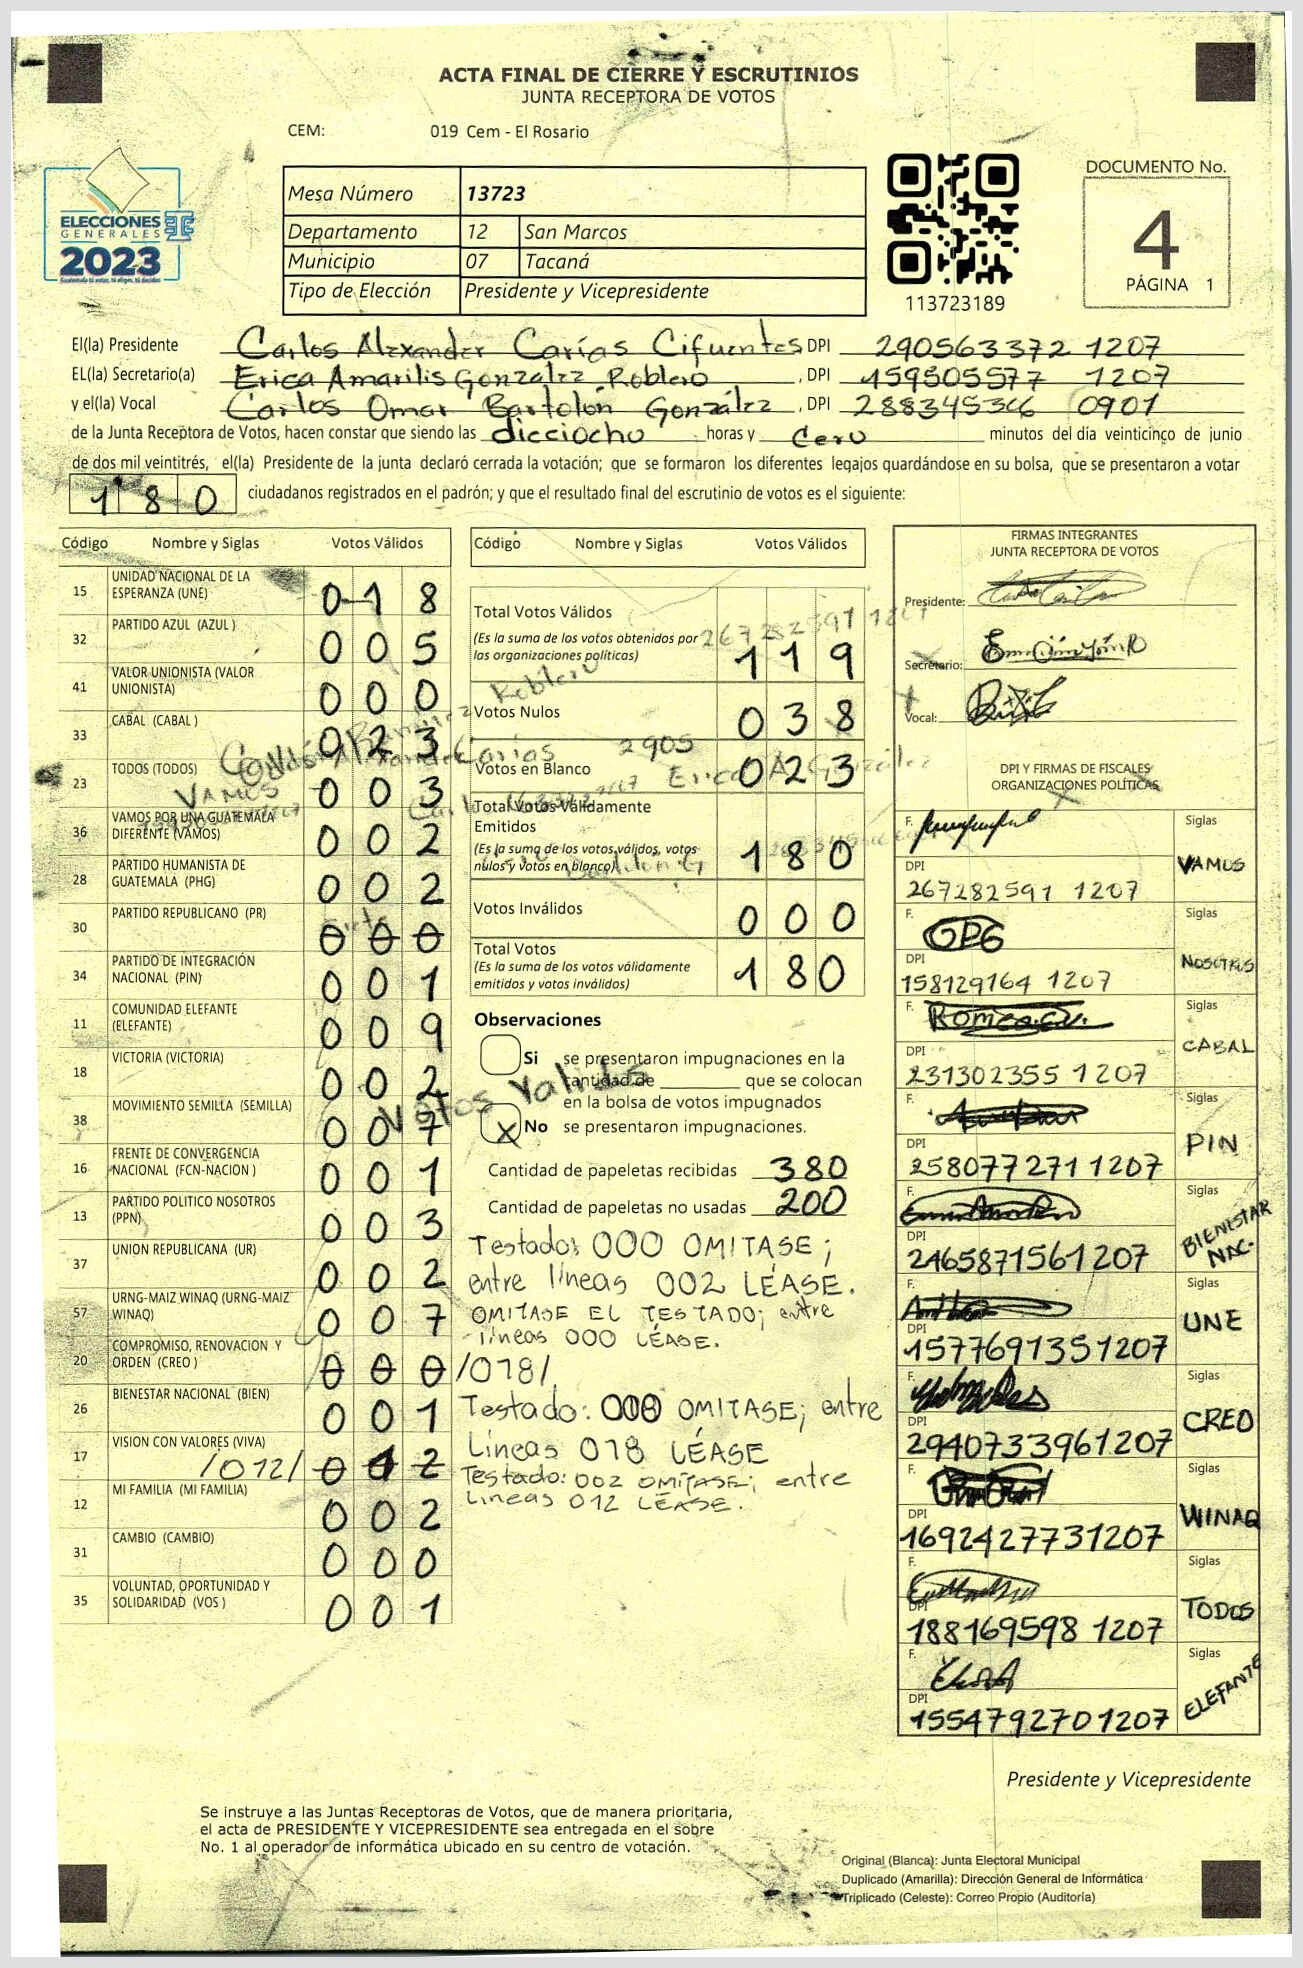 ACTA FINAL DE CIERRE Y ESCRUTINIOS
JUNTA RECEPTORA DE VOTOS
CEM: 019 Cem - El Rosario
ELECCIONES
GENERALES
2023
Mesa Número 13723
Departamento 12 San Marcos
Municipio 07 Tacaná
Tipo de Elección Presidente y Vicepresidente
113723189
DOCUMENTO No.
4
PÁGINA 1
El(la) Presidente Carlos Alexander Carías Cifuentes DPI 290563372 1207
EL(la) Secretario(a) Erica Amarilis González Roblero, DPI 159505577 1207
y el(la) Vocal Carlos Omar Bartolón González, DPI 288345346 0901
de la Junta Receptora de Votos, hacen constar que siendo las dicciocho horas y cero minutos del día veinticinco de junio
de dos mil veintitrés, el(la) Presidente de la junta declaró cerrada la votación; que se formaron los diferentes legajos guardándose en su bolsa, que se presentaron a votar
180 ciudadanos registrados en el padrón; y que el resultado final del escrutinio de votos es el siguiente:
Código Nombre y Siglas Votos Válidos
15 UNIDAD NACIONAL DE LA ESPERANZA (UNE) 018
32 PARTIDO AZUL (AZUL ) 005
41 VALOR UNIONISTA (VALOR UNIONISTA) 000
33 CABAL (CABAL ) 023
23 TODOS (TODOS) 003
36 VAMOS POR UNA GUATEMALA DIFERENTE (VAMOS) 002
28 PARTIDO HUMANISTA DE GUATEMALA (PHG) 002
30 PARTIDO REPUBLICANO (PR) 000
34 PARTIDO DE INTEGRACIÓN NACIONAL (PIN) 001
11 COMUNIDAD ELEFANTE (ELEFANTE) 009
18 VICTORIA (VICTORIA) 002
38 MOVIMIENTO SEMILLA (SEMILLA) 007
16 FRENTE DE CONVERGENCIA NACIONAL (FCN-NACION ) 001
13 PARTIDO POLITICO NOSOTROS (PPN) 003
37 UNION REPUBLICANA (UR) 002
57 URNG-MAIZ WINAQ (URNG-MAIZ WINAQ) 007
20 COMPROMISO, RENOVACION Y ORDEN (CREO ) 000 /018/
26 BIENESTAR NACIONAL (BIEN) 001
17 VISION CON VALORES (VIVA) /012/ 012
12 MI FAMILIA (MI FAMILIA) 002
31 CAMBIO (CAMBIO) 000
35 VOLUNTAD, OPORTUNIDAD Y SOLIDARIDAD (VOS ) 001
Código Nombre y Siglas Votos Válidos
Total Votos Válidos
(Es la suma de los votos obtenidos por las organizaciones políticas) 119
Votos Nulos 038
Votos en Blanco 023
Total Votos Válidamente Emitidos
(Es la suma de los votos válidos, votos nulos y votos en blanco) 180
Votos Inválidos 000
Total Votos
(Es la suma de los votos válidamente emitidos y votos inválidos) 180
VAMOS
Votos Validos
Observaciones
Si se presentaron impugnaciones en la
cantidad de ________ que se colocan
en la bolsa de votos impugnados
X No se presentaron impugnaciones.
Cantidad de papeletas recibidas 380
Cantidad de papeletas no usadas 200
Testado: 000 OMITASE;
entre líneas 002 LÉASE.
OMITASE EL TESTADO; entre
líneas 000 LÉASE.
Testado: 000 OMITASE; entre
Líneas 018 LÉASE
Testado: 002 OMITASE; entre
Líneas 012 LÉASE.
FIRMAS INTEGRANTES
JUNTA RECEPTORA DE VOTOS
Presidente:
Secretario:
Vocal:
DPI Y FIRMAS DE FISCALES
ORGANIZACIONES POLÍTICAS
F. Siglas VAMOS
DPI 267282591 1207
F. Siglas NOSOTROS
DPI 158129164 1207
F. Siglas CABAL
DPI 231302355 1207
F. Siglas PIN
DPI 258077271 1207
F. Siglas BIENESTAR NAC.
DPI 246587156 1207
F. Siglas UNE
DPI 157769135 1207
F. Siglas CREO
DPI 294073396 1207
F. Siglas WINAQ
DPI 169242773 1207
F. Siglas TODOS
DPI 188169598 1207
F. Siglas ELEFANTE
DPI 155479270 1207
Presidente y Vicepresidente
Se instruye a las Juntas Receptoras de Votos, que de manera prioritaria,
el acta de PRESIDENTE Y VICEPRESIDENTE sea entregada en el sobre
No. 1 al operador de informática ubicado en su centro de votación.
Original (Blanca): Junta Electoral Municipal
Duplicado (Amarilla): Dirección General de Informática
Triplicado (Celeste): Correo Propio (Auditoría)